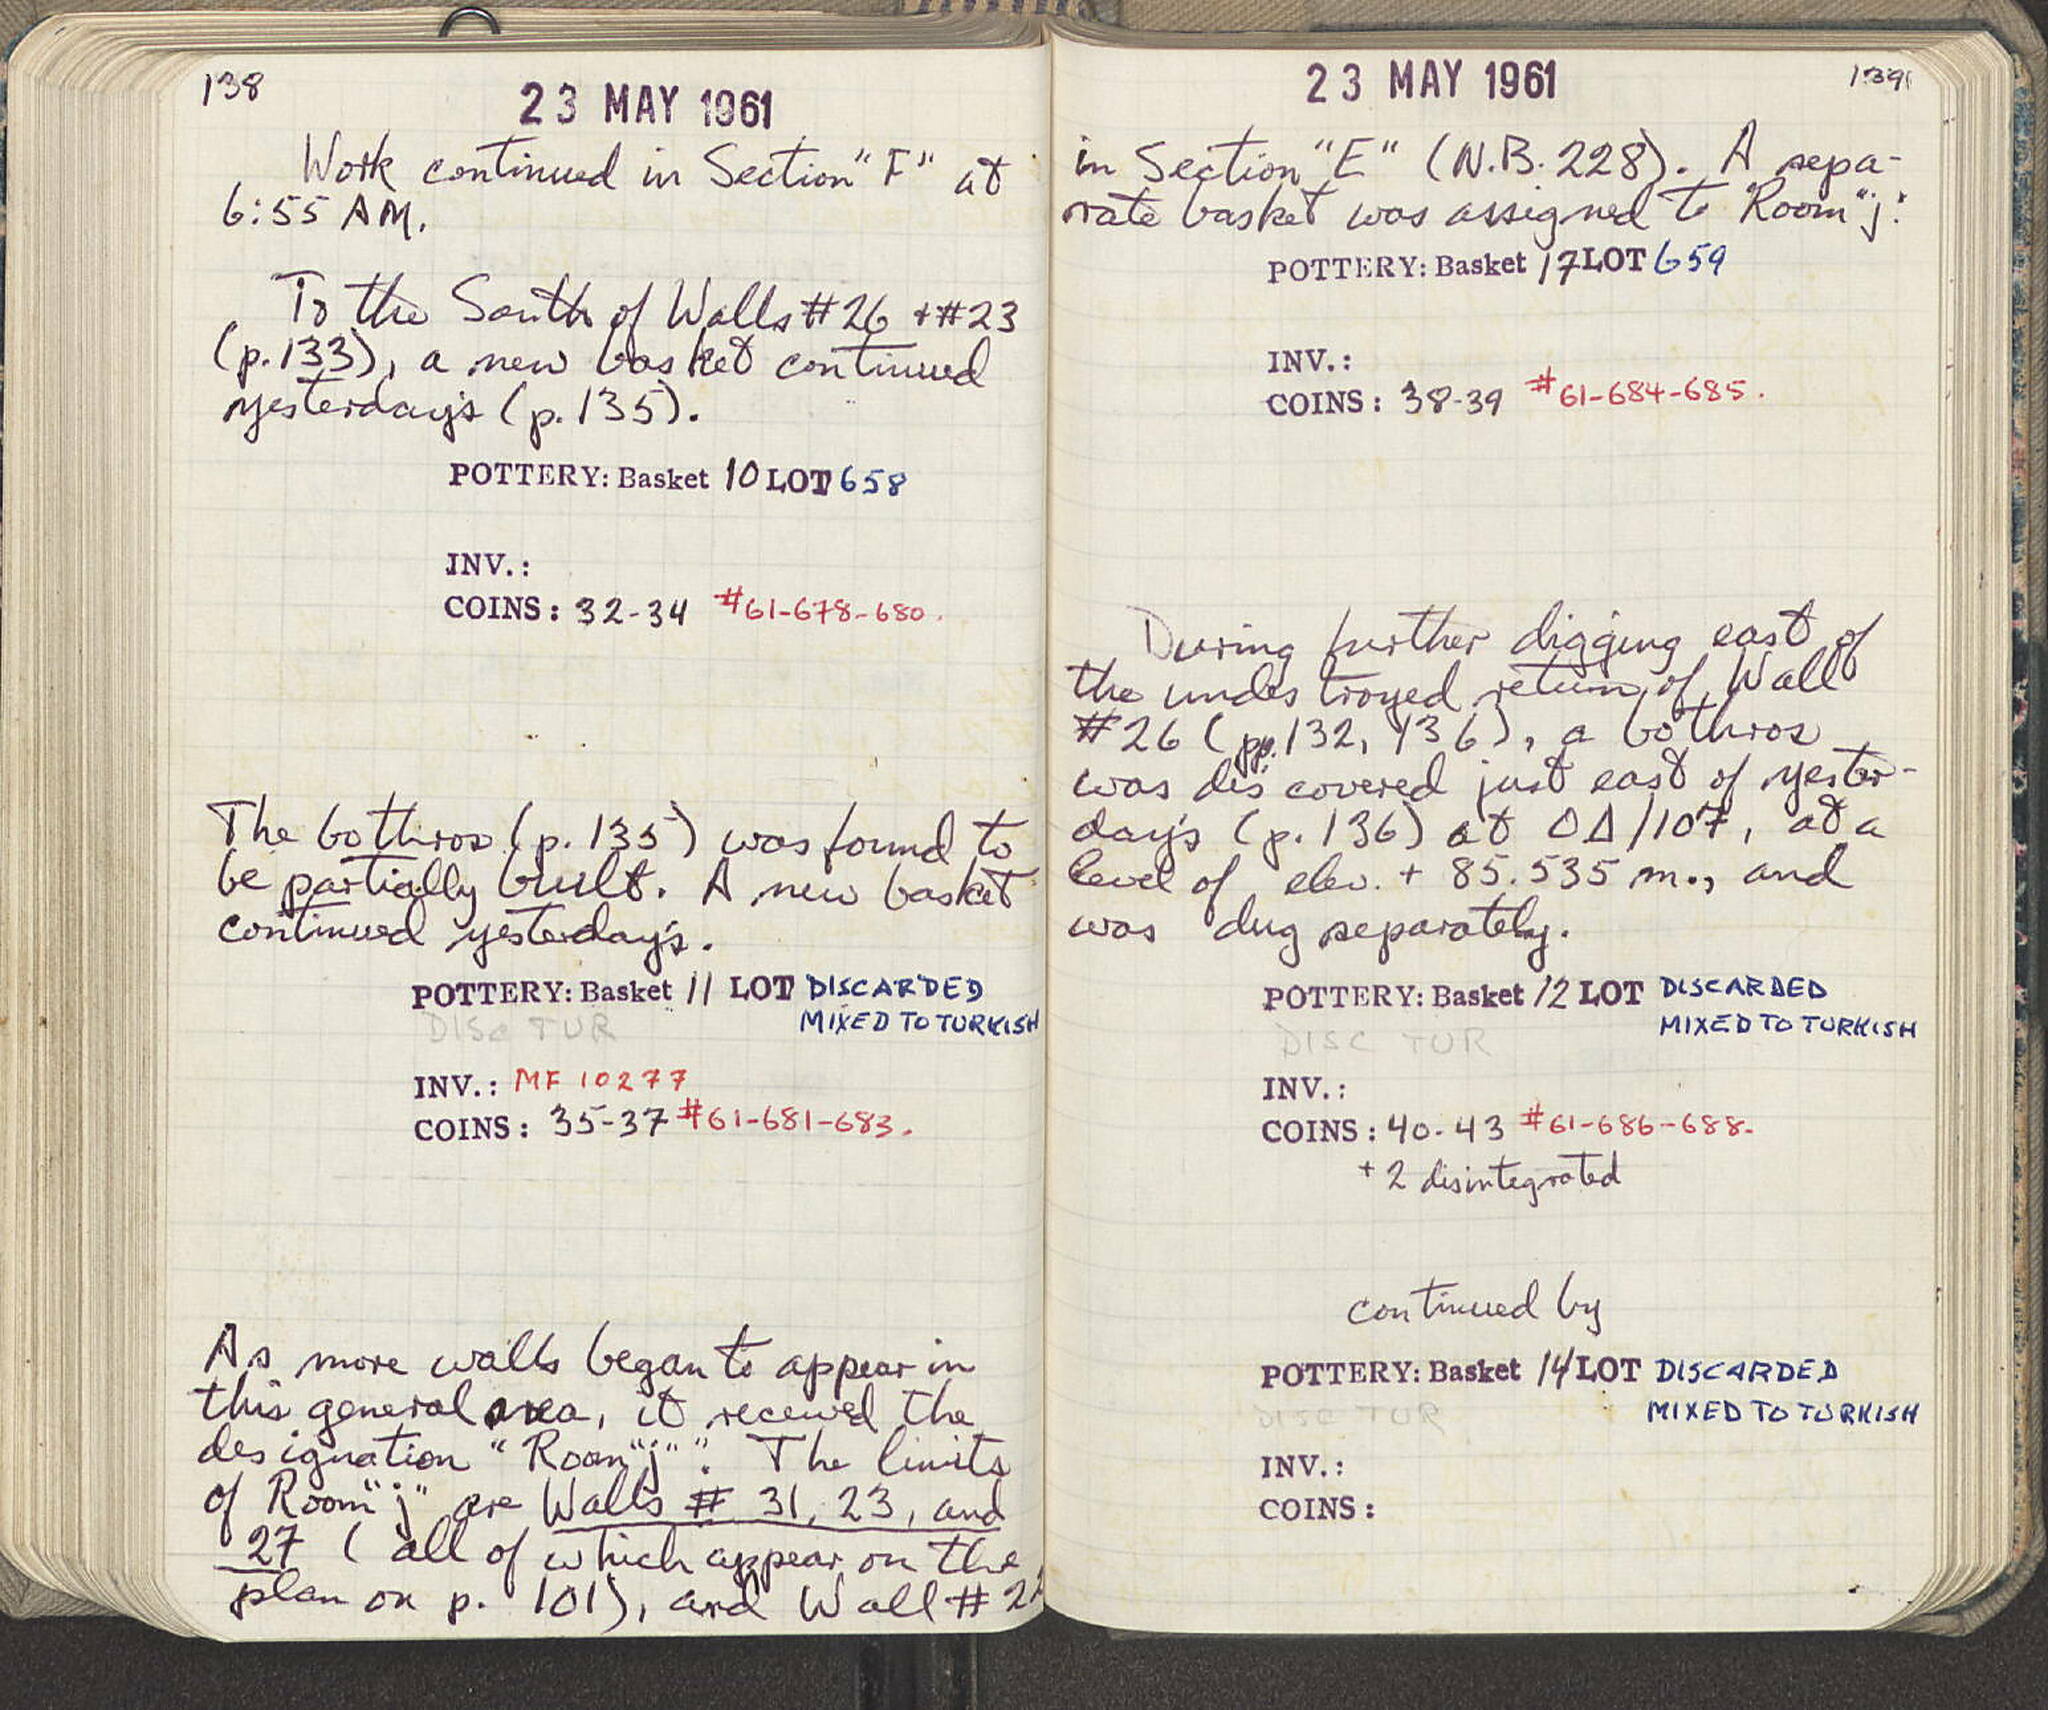 138
23 MAY 1961
Work continued in Section "F" at
6:55 AM.
To the South of Walls #26 + #23
(p. 133), a new basket continued
yesterday's (p. 135).
POTTERY: Basket 10 LOT 658
INV.:
COINS: 32-34 #61-678-680.
The bothros (p. 135) was found to
be partially built. A new basket
continued yesterday's.
POTTERY: Basket 11 LOT DISCARDED
DISC TUR MIXED TO TURKISH
INV.: MF 10277
COINS: 35-37 #61-681-683.
As more walls began to appear in
this general area, it received the
designation "Room "j"". The limits
of Room "j" are Walls # 31, 23, and
27 (all of which appear on the
plan on p. 101), and Wall #
139
23 MAY 1961
in Section "E" (N.B. 228). A sepa-
rate basket was assigned to Room "j":
POTTERY: Basket 17 LOT 659
INV.:
COINS: 38-39 #61-684-685.
During further digging east of
the undestroyed return of Wall
#26 (pp. 132, 136), a bothros
was discovered just east of yester-
day's (p. 136) at ΟΔ/107, at a
level of elev. + 85.535 m., and
was dug separately.
POTTERY: Basket 12 LOT DISCARDED
DISC TUR MIXED TO TURKISH
INV.:
COINS: 40-43 #61-686-688.
+ 2 disintegrated
continued by
POTTERY: Basket 14 LOT DISCARDED
DISC TUR MIXED TO TURKISH
INV.:
COINS: